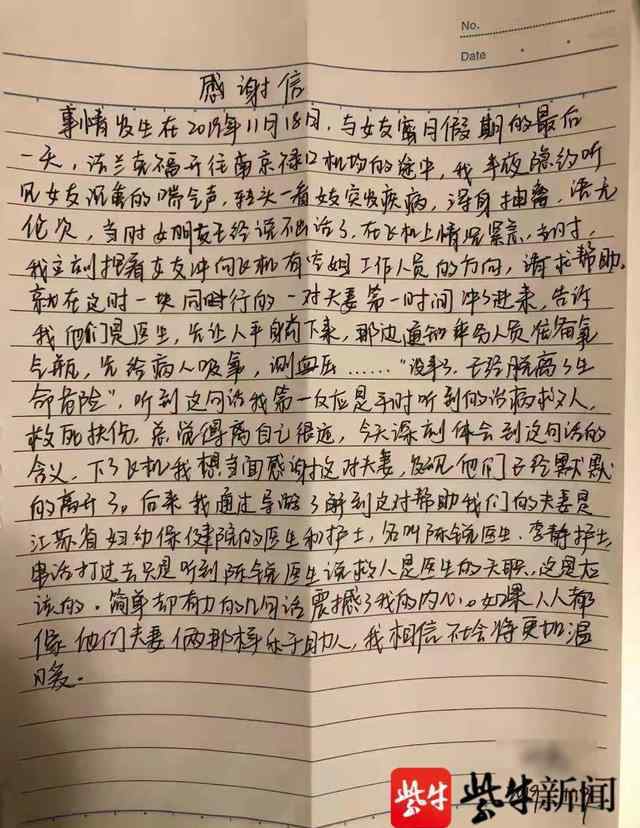 No.
Date
感谢信
事情发生在2019年11月18日，与女友蜜月假期的最后
一天，法兰克福开往南京禄口机场的途中，我半夜隐约听
见女友沉重的喘气声，转头一看女友突发疾病，浑身抽搐，语无
伦次，当时女朋友已经说不出话了，在飞机上情况紧急，当时，
我立刻抱着女友冲向飞机有空姐工作人员的方向，请求帮助。
就在这时一块同时行的一对夫妻第一时间冲了进来，告诉
我他们是医生，先让人平身尚下来，那边通知乘务人员准备氧
气瓶，先给病人吸氧，测血压……“没事了，已经脱离了生
命危险”，听到这句话我第一反应是平时听到的治病救人，
救死扶伤，总觉得离自己很远，今天深刻体会到这句话的
含义。下了飞机我想当面感谢这对夫妻，发现他们已经默默
的离开了。后来我通过导游了解到这对帮助我们的夫妻是
江苏省妇幼保健院的医生和护士，名叫陈锐医生、李静护士，
电话打过去只是听到陈锐医生说救人是医生的天职，这是应
该的。简单却有力的几句话震撼了我的内心。如果人人都
像他们夫妻俩那样乐于助人，我相信社会将更加温
暖。
紫牛 紫牛新闻